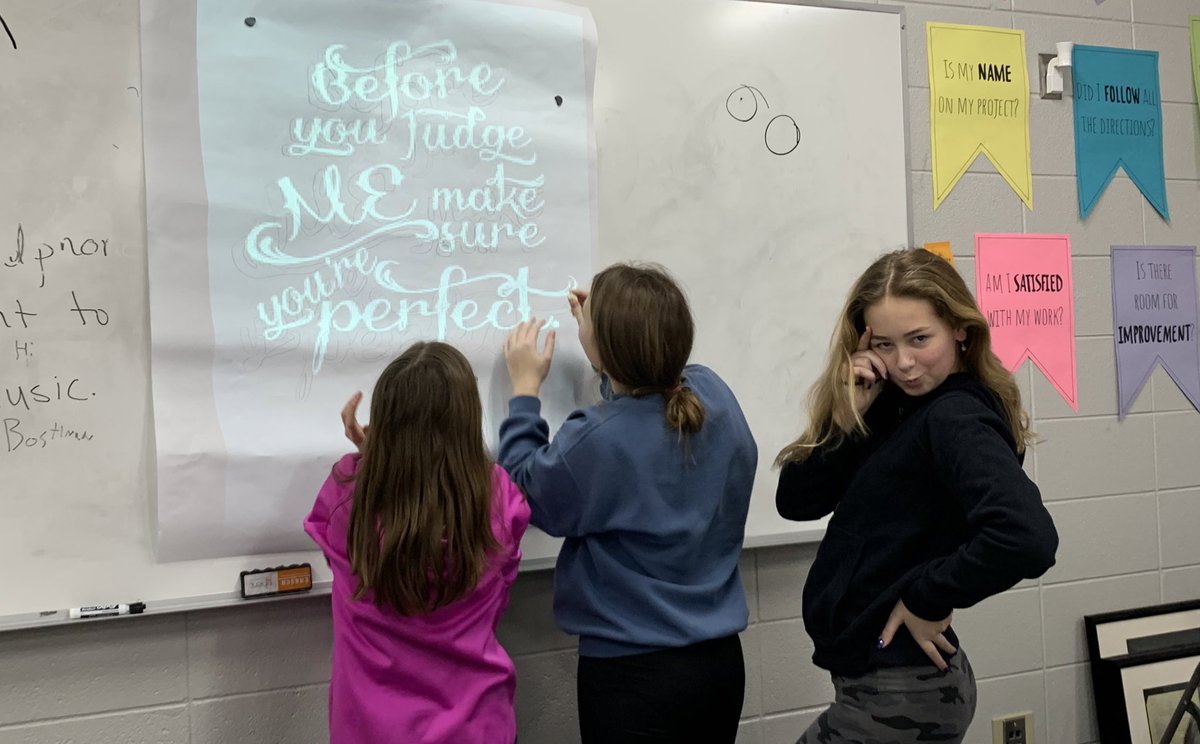 Before
you Judge
ME make
sure
you're
perfect.
nt to
Hi
usic.
IS MY NAME
ON MY PROJECT?
DID I FOLLOW ALL
THE DIRECTIONS?
AM I SATISFIED
WITH MY WORK?
IS THERE
ROOM FOR
IMPROVEMENT?